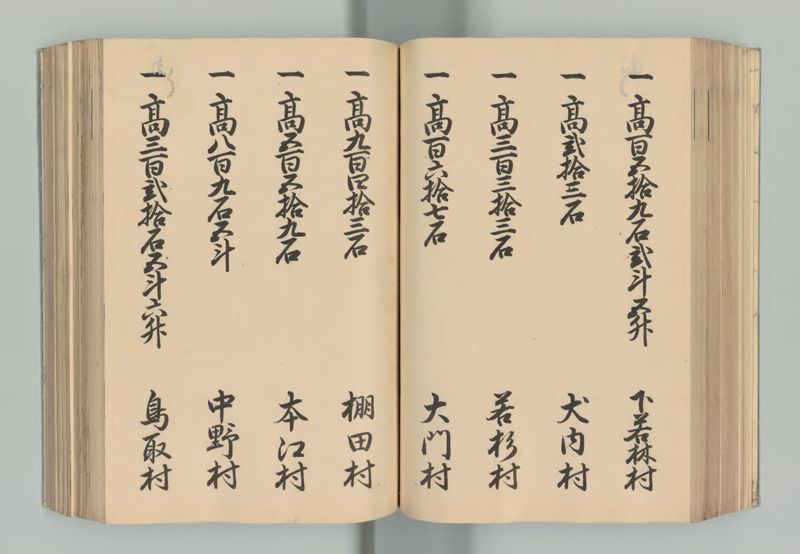 一 高百五拾九石弐斗五升 下若林村
一 高弐拾三石 犬内村
一 高三百三拾三石 若杉村
一 高百六拾七石 大門村
一 高九百四拾三石 棚田村
一 高五百五拾九石 本江村
一 高八百九石五斗 中野村
一 高三百弐拾石五斗六升 鳥取村